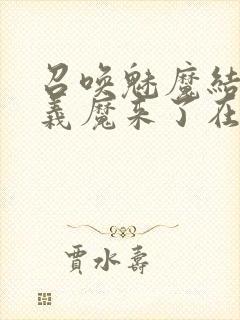 召唤魅魔结
義魔来了在
贾水寿